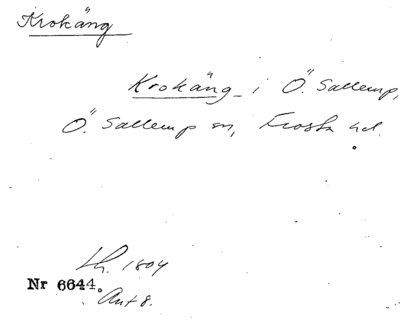 Krokäng
Krokäng i Ö. Sallerup,
Ö. Sallerup sn, Frosta hd.
Lh. 1804
Nr 6644.
Akt 8.